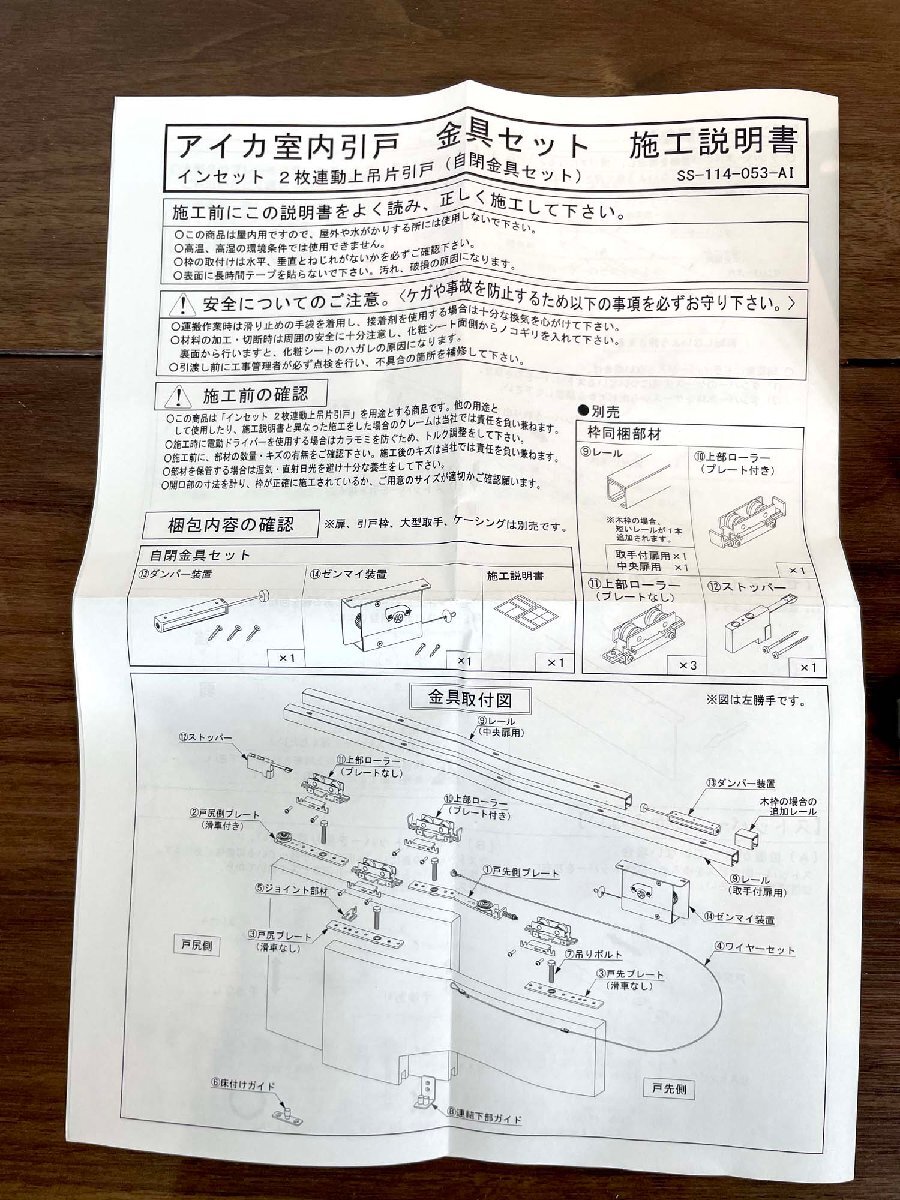 アイカ室内引戸 金具セット 施工説明書
インセット 2枚連動上吊片引戸（自閉金具セット）
SS-114-053-AI
施工前にこの説明書をよく読み、正しく施工して下さい。
○この商品は屋内用ですので、屋外や水がかりする所には使用しないで下さい。
○高温、高湿の環境条件では使用できません。
○枠の取付けは水平、垂直とねじれがないかを必ずご確認下さい。
○表面に長時間テープを貼らないで下さい。汚れ、破損の原因になります。
安全についてのご注意。〈ケガや事故を防止するため以下の事項を必ずお守り下さい。〉
○運搬作業時は滑り止めの手袋を着用し、接着剤を使用する場合は十分な換気を心がけて下さい。
○材料の加工・切断時は周囲の安全に十分注意し、化粧シート面側からノコギリを入れて下さい。
裏面から行いますと、化粧シートのハガレの原因になります。
○引渡し前に工事管理者が必ず点検を行い、不具合の箇所を補修して下さい。
施工前の確認
○この商品は「インセット 2枚連動上吊片引戸」を用途とする商品です。他の用途と
して使用したり、施工説明書と異なった施工をした場合のクレームは当社では責任を負い兼ねます。
○施工時に電動ドライバーを使用する場合はカラモミを防ぐため、トルク調整をして下さい。
○施工前に、部材の数量・キズの有無をご確認下さい。施工後のキズは当社では責任を負い兼ねます。
○部材を保管する場合は湿気・直射日光を避け十分な養生をして下さい。
○開口部の寸法を計り、枠が正確に施工されているか、ご用意のサイズが適切かご確認願います。
●別売
枠同梱部材
⑨レール
※木枠の場合、
短いレールが1本
追加されます。
取手付扉用×1
中央扉用 ×1
⑩上部ローラー
（プレート付き）
×1
⑪上部ローラー
（プレートなし）
×3
⑫ストッパー
×1
梱包内容の確認
※扉、引戸枠、大型取手、ケーシングは別売です。
自閉金具セット
⑬ダンパー装置
×1
⑭ゼンマイ装置
×1
施工説明書
×1
金具取付図
※図は左勝手です。
⑨レール
（中央扉用）
⑫ストッパー
⑪上部ローラー
（プレートなし）
⑩上部ローラー
（プレート付き）
⑬ダンパー装置
木枠の場合の
追加レール
②戸尻側プレート
（滑車付き）
①戸先側プレート
⑨レール
（取手付扉用）
⑤ジョイント部材
⑭ゼンマイ装置
③戸尻プレート
（滑車なし）
戸尻側
④ワイヤーセット
⑦吊りボルト
③戸先プレート
（滑車なし）
⑥床付けガイド
⑧連結下部ガイド
戸先側